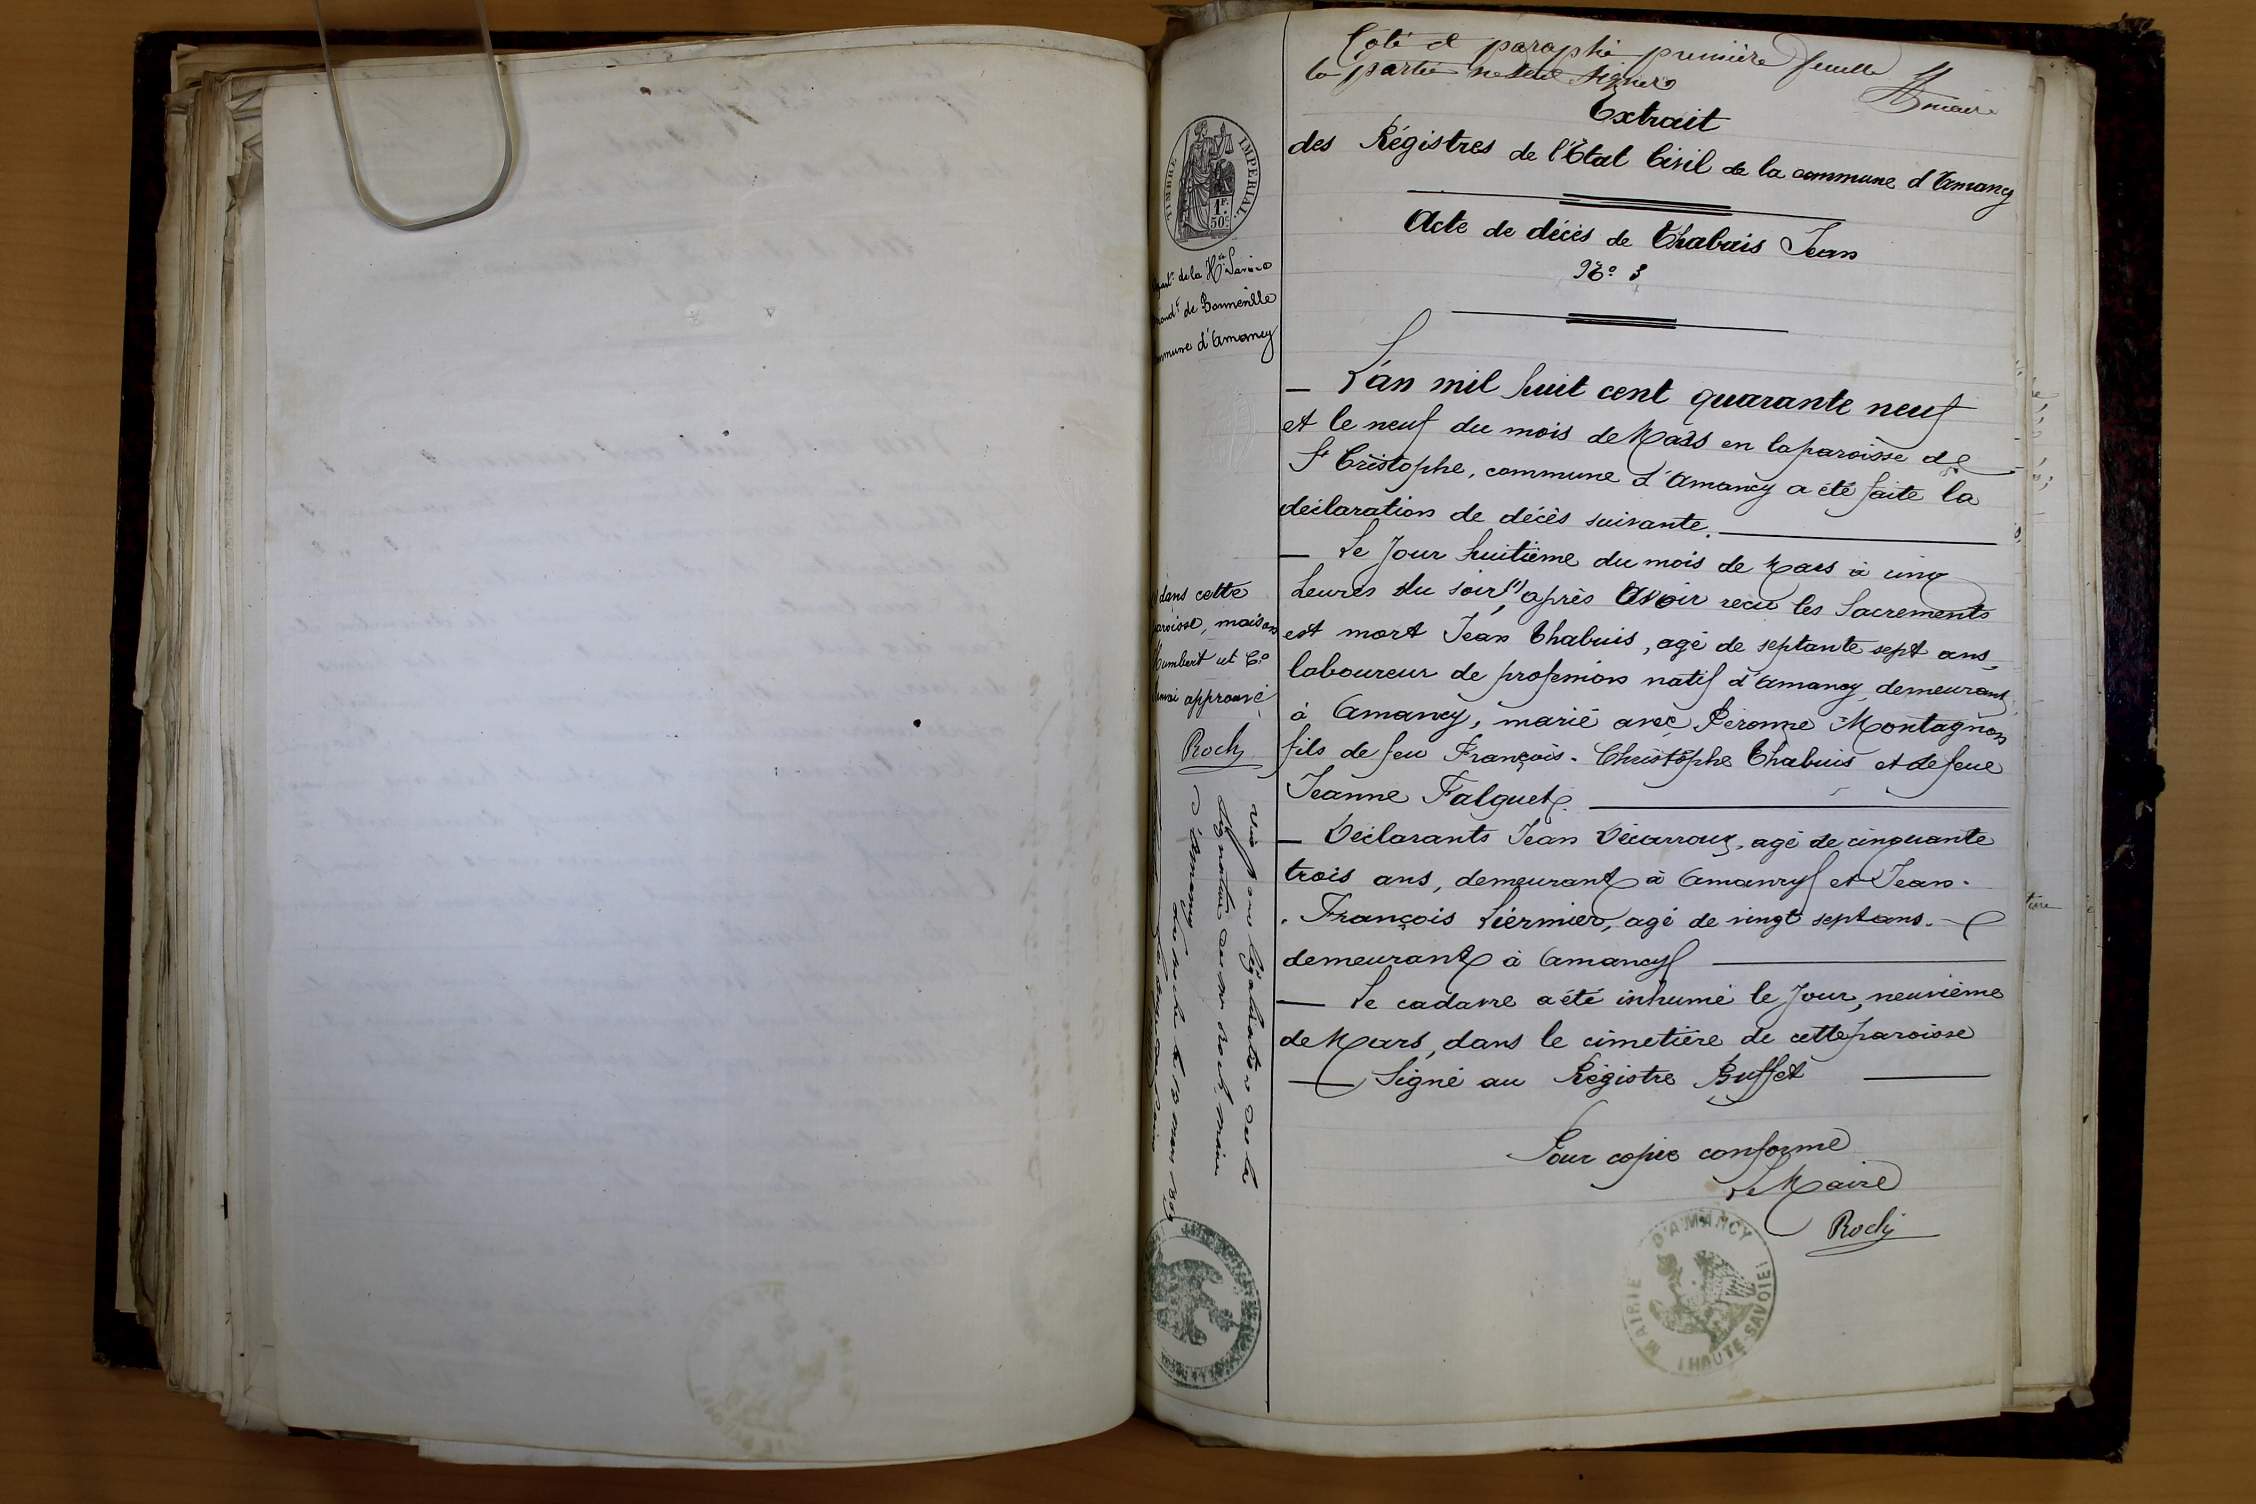 Coté et paraphé première feuille
la partie ne sait signer
Extrait
des Régistres de l'Etat Civil de la commune d'Amancy
Acte de décès de Chabuis Jean
N.º 3
TIMBRE IMPERIAL
1F.
50c.
de la Hte Savoie
de Bonneville
d'Amancy
— L'an mil huit cent quarante neuf
et le neuf du mois de Mars en la paroisse de
St Cristophe, commune d'Amancy a été faite la
déclaration de décès suivante.
— Le Jour huitième du mois de Mars à cinq
heures du soir (1), après avoir reçu les Sacrements
est mort Jean Chabuis, agé de septante sept ans,
laboureur de profession natif d'Amancy demeurant
à Amancy, marié avec Péronne Montagnon
fils de feu François-Christophe Chabuis et de feue
Jeanne Falguet.
— Déclarants Jean Décarroux, agé de cinquante
trois ans, demeurant à Amancy et Jean-
-François Liermier, agé de vingt sept ans.
demeurant à Amancy
— Le cadavre a été inhumé le Jour, neuvième
de Mars, dans le cimetière de cette paroisse
— Signé au Régistre Buffet
Pour copie conforme
Le Maire
Roch
MAIRIE D'AMANCY
(HAUTE-SAVOIE)
dans cette
paroisse, maison
Humbert et Cie
Renvoi approuvé
Roch
Vu pour légalisation de la
signature de Mr Roch, maire
d'Amancy